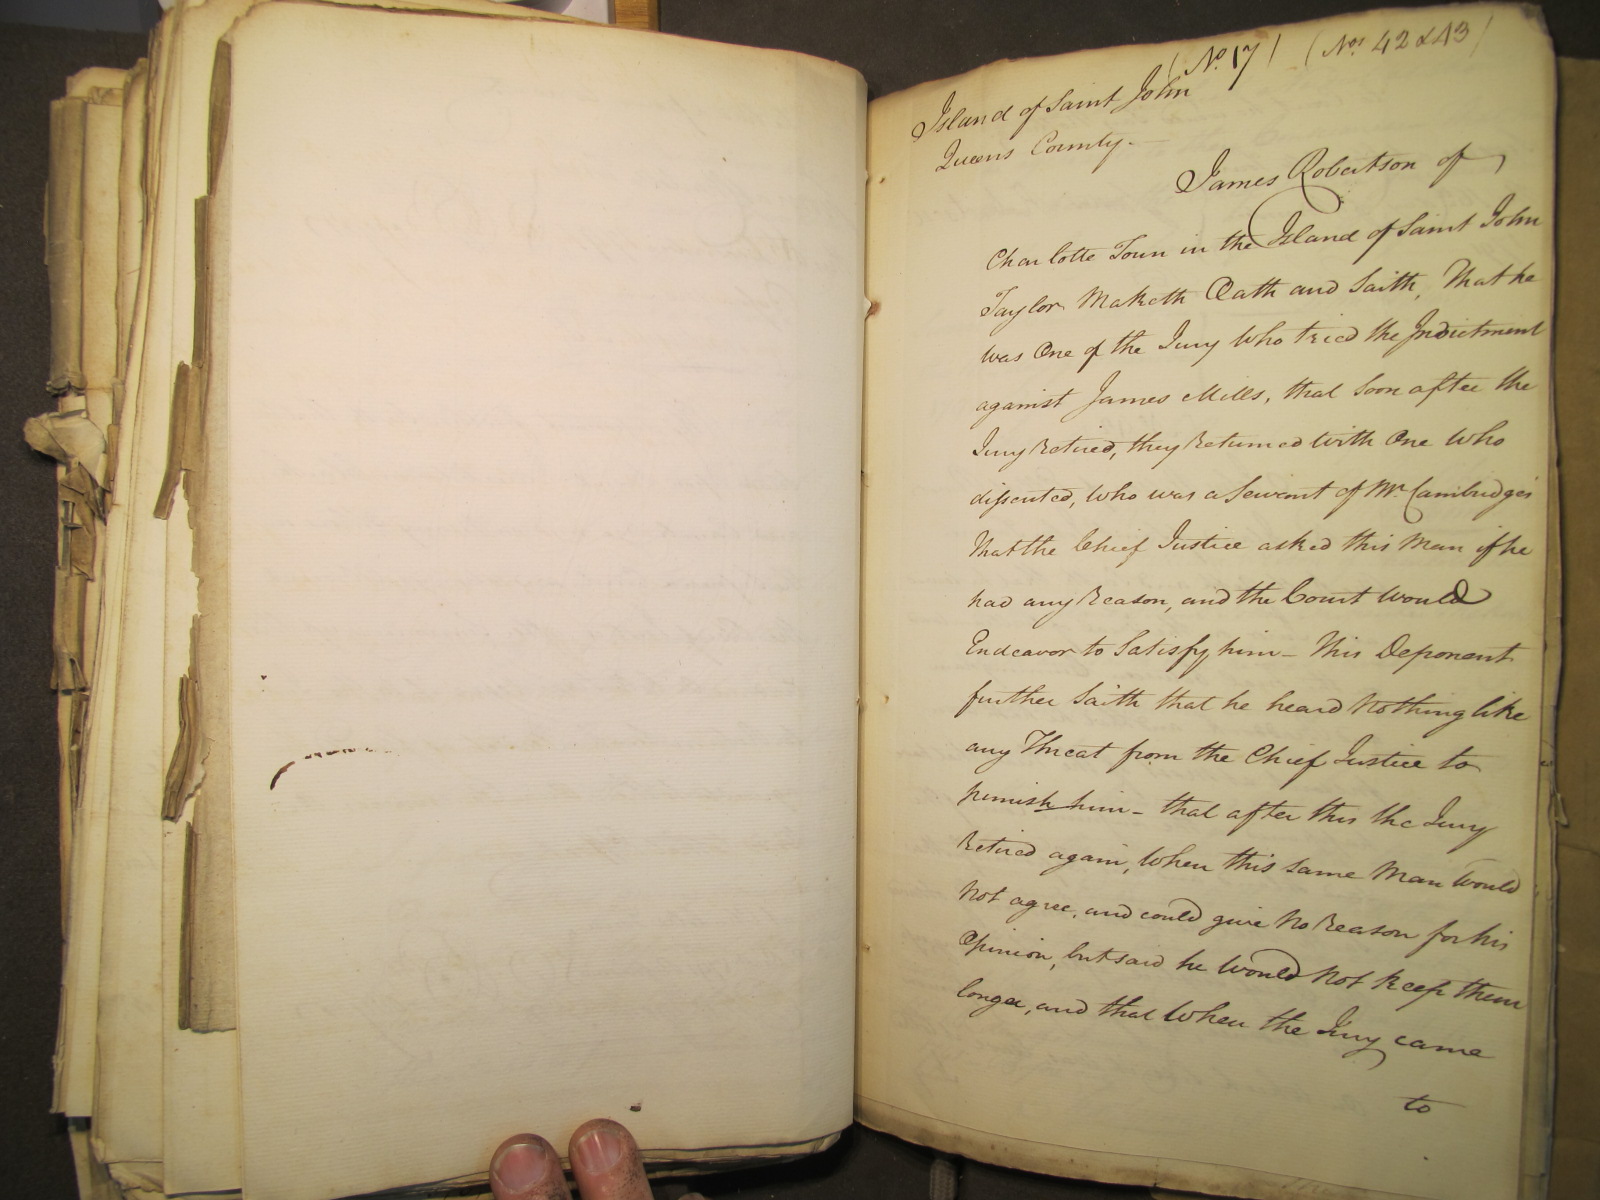 (No. 17) (Nos 42 & 43)
Island of Saint John
Queens County.—
James Robertson of
Charlotte Town in the Island of Saint John
Taylor Maketh Oath and Saith, That he
was One of the Jury Who tried the Indictment
against James Mills, that soon after the
Jury Retired, they Returned with One Who
dissented, Who was a Servant of Mr. Cambridge's
That the Chief Justice asked this Man if he
had any Reason, and the Court Would
Endeavor to Satisfy him— This Deponent
further Saith that he heard Nothing like
any Threat from the Chief Justice to
punish him— that after this the Jury
Retired again, When this same Man Would
Not agree, and could give No Reason for his
Opinion, but said he Would Not Keep them
longer, and that When the Jury came
to